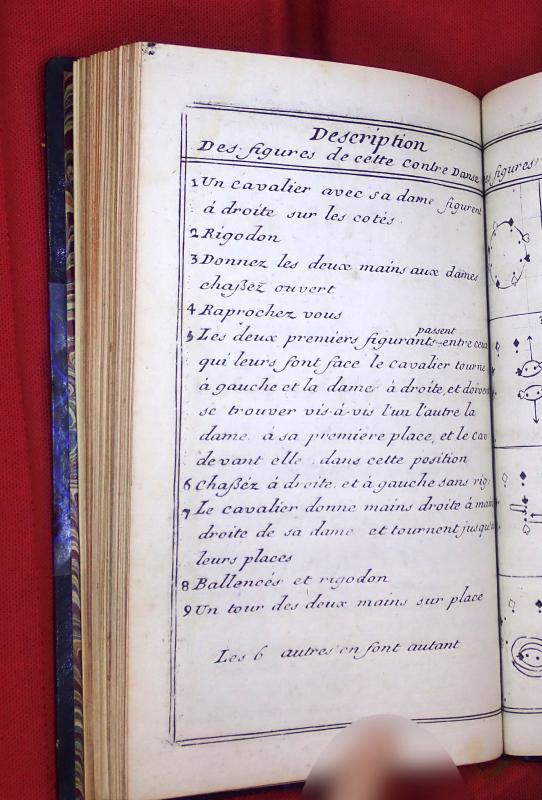 Description
Des figures de cette Contre Danse
1 Un cavalier avec sa dame figurent
á droite sur les cotés
2 Rigodon
3 Donnez les deux mains aux dames
chaßez ouvert
4 Raprochez vous
passent
5 Les deux premiers figurants entre ceux
qui leurs font face le cavalier tourne
á gauche et la dame á droite, et doivent
se trouver vis-á-vis l'un l'autre la
dame á sa premiere place, et le cav
devant elle dans cette position
6 Chaßéz á droite et á gauche sans rig
7 Le cavalier donne mains droite á main
droite de sa dame et tournent jusqu'a
leurs places
8 Ballencés et rigodon
9 Un tour des deux mains sur place
Les 6 autres en font autant
figures